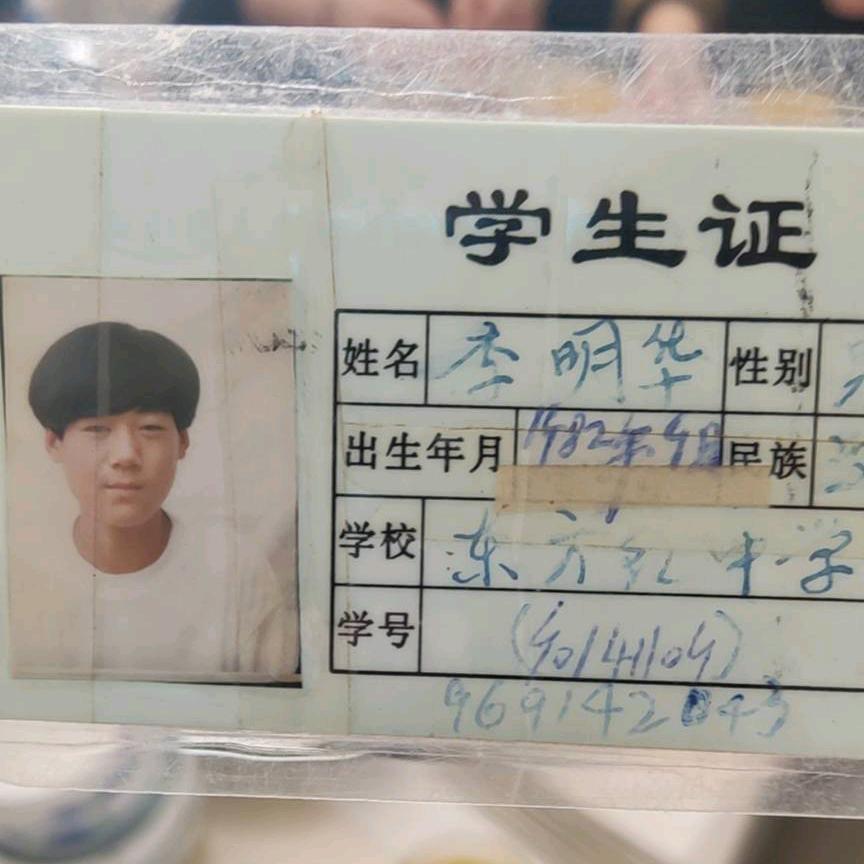 学生证
姓名 李明华 性别
出生年月 1982年9月 民族
学校 东方红中学
学号 (
969142843